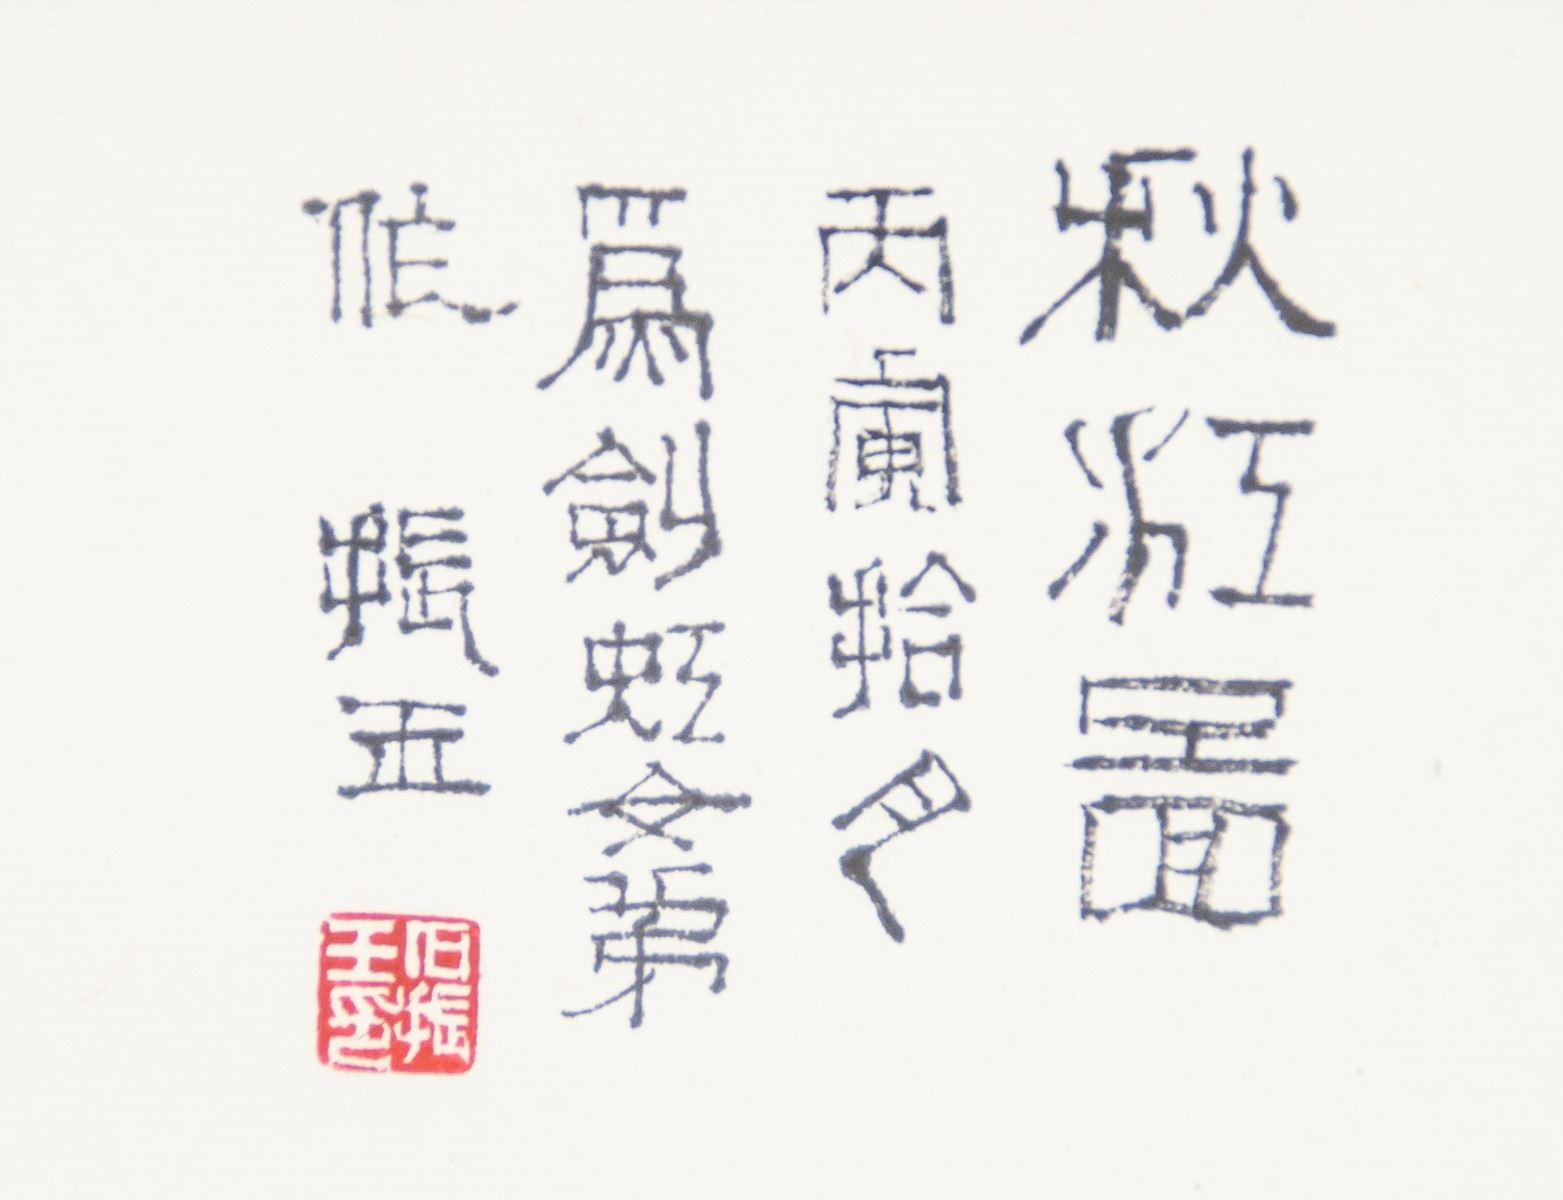 秋江圖
丙寅拾月
為劍虹文弟
作 振玉
石振
玉印